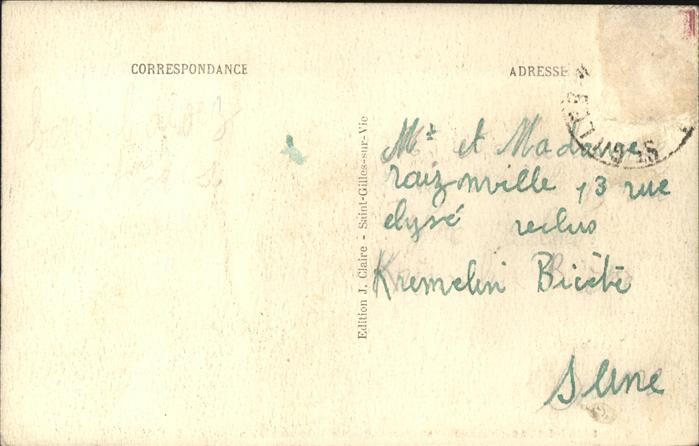 CORRESPONDANCE
ADRESSE
bons baisez
Edition J. Claire - Saint-Gilles-sur-Vie
Mr et Madame
raizonville 13 rue
elysé reclus
Kremelin Bicête
Seine